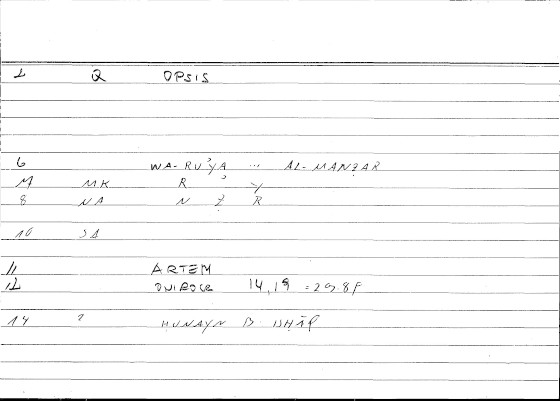 1 Q OPSIS
6 WA-RUʾYA ... AL-MANẒAR
M MK R ʾ Y
8 NA N Ẓ R
10 SA
11 ARTEM
12 ONIROCR 14,19 = 29.8F
14 ? ḤUNAYN B. ISḤĀQ